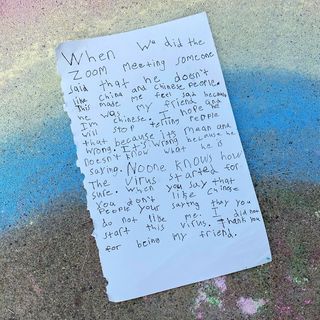 When Wu did the
Zoom meeting someone
said that he doesn't
like China and Chinese people.
This made me feel sad because
he was my friend and
I'm chinese. I hope he
will stop telling people
that because its maan and
wrong. It's wrong because he
doesn't know what he is
saying. Noone knows how
the virus started for
sure. When you say that
you don't like Chinese
People your saying that you
do not like me. I did not
start this virus. Thank you
for being my friend.